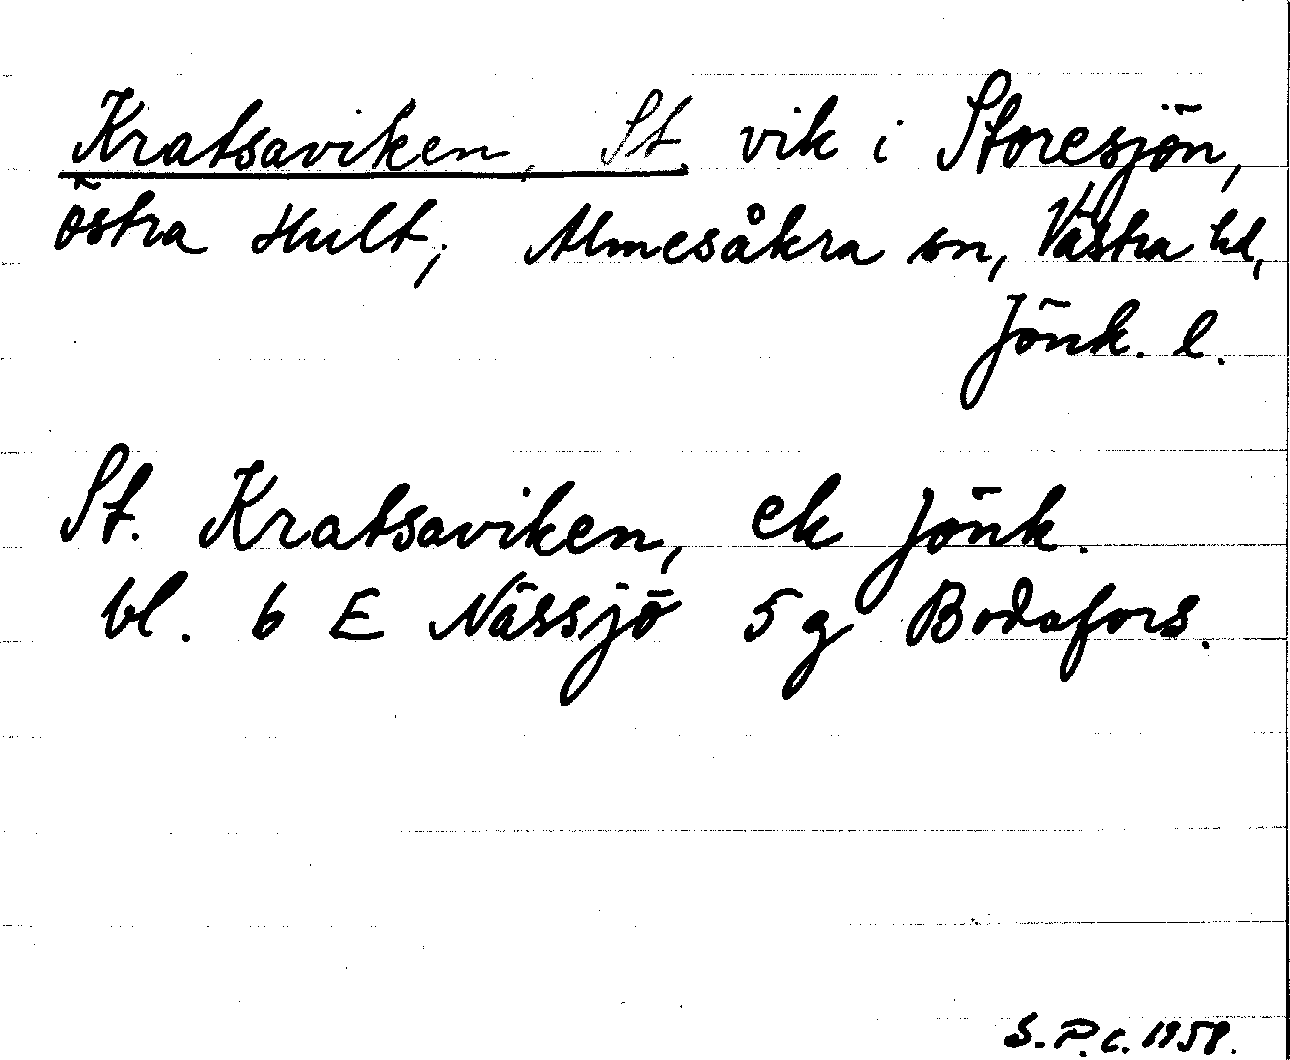 Kratsaviken, St. vik i Storesjön,
Östra Hult, Almesåkra sn, Västra hd,
Jönk. l.
St. Kratsaviken, ek Jönk.
bl. 6 E Nässjö 5 g Bodafors.
S.P.c. 1958.